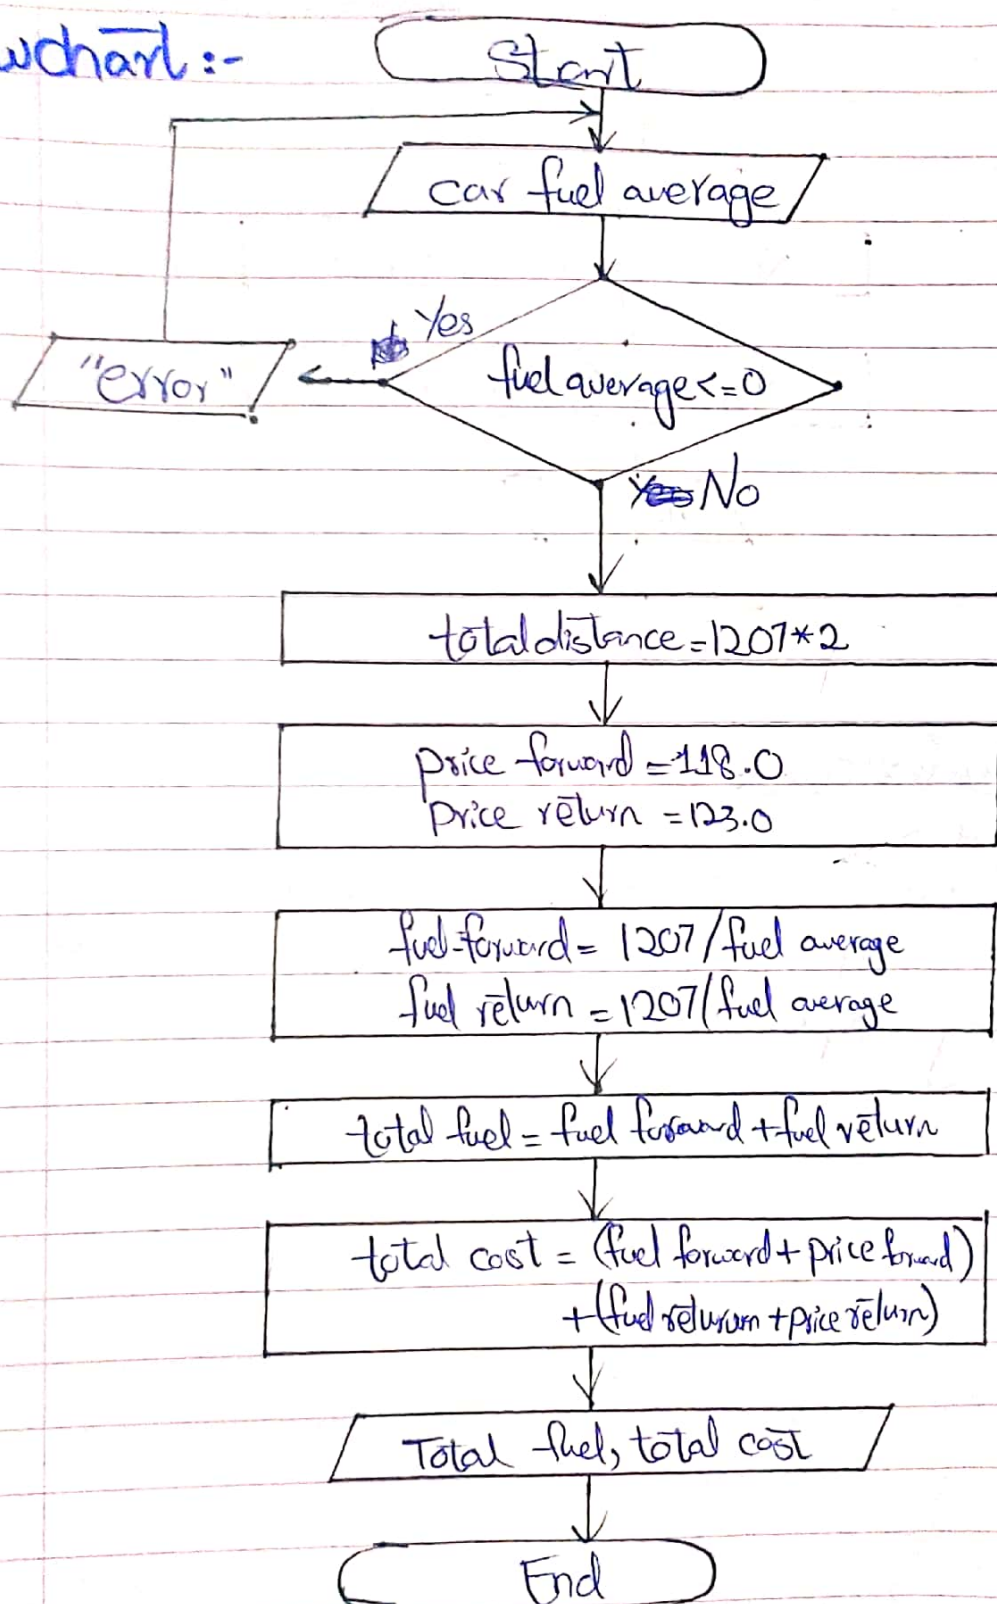 wchart :-
Start
car fuel average
Yes
fuel average <= 0
"error"
No
total distance = 1207 * 2
price forward = 118.0
Price return = 123.0
fuel-forward = 1207 / fuel average
fuel return = 1207 / fuel average
total fuel = fuel forward + fuel return
total cost = (fuel forword + price forwad)
+ (fuel returum + price return)
Total fuel, total cost
End